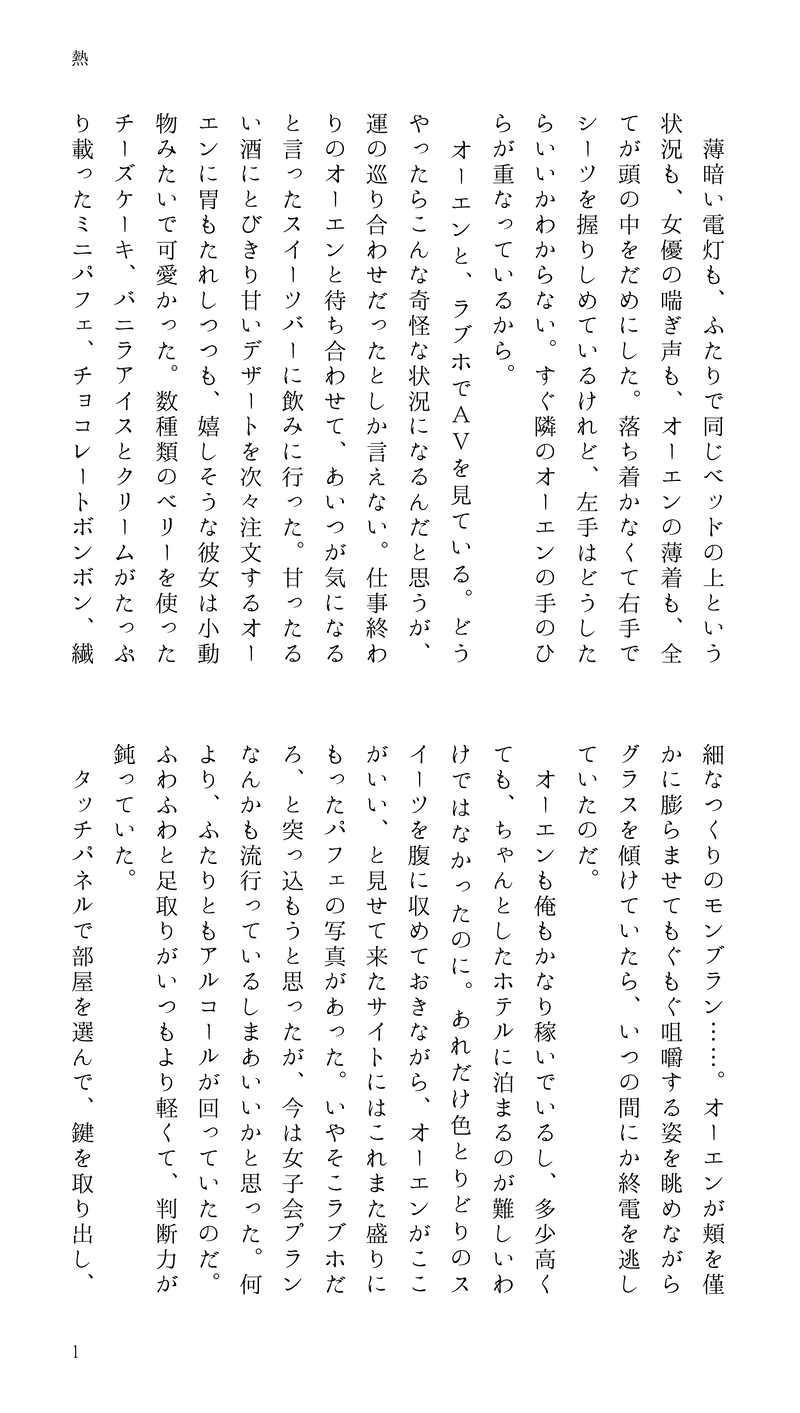 熱
　薄暗い電灯も、ふたりで同じベッドの上という
状況も、女優の喘ぎ声も、オーエンの薄着も、全
てが頭の中をだめにした。落ち着かなくて右手で
シーツを握りしめているけれど、左手はどうした
らいいかわからない。すぐ隣のオーエンの手のひ
らが重なっているから。
　オーエンと、ラブホでＡＶを見ている。どう
やったらこんな奇怪な状況になるんだと思うが、
運の巡り合わせだったとしか言えない。仕事終わ
りのオーエンと待ち合わせて、あいつが気になる
と言ったスイーツバーに飲みに行った。甘ったる
い酒にとびきり甘いデザートを次々注文するオー
エンに胃もたれしつつも、嬉しそうな彼女は小動
物みたいで可愛かった。数種類のベリーを使った
チーズケーキ、バニラアイスとクリームがたっぷ
り載ったミニパフェ、チョコレートボンボン、繊
細なつくりのモンブラン……。オーエンが頬を僅
かに膨らませてもぐもぐ咀嚼する姿を眺めながら
グラスを傾けていたら、いつの間にか終電を逃し
ていたのだ。
　オーエンも俺もかなり稼いでいるし、多少高く
ても、ちゃんとしたホテルに泊まるのが難しいわ
けではなかったのに。あれだけ色とりどりのス
イーツを腹に収めておきながら、オーエンがここ
がいい、と見せて来たサイトにはこれまた盛りに
もったパフェの写真があった。いやそこラブホだ
ろ、と突っ込もうと思ったが、今は女子会プラン
なんかも流行っているしまあいいかと思った。何
より、ふたりともアルコールが回っていたのだ。
ふわふわと足取りがいつもより軽くて、判断力が
鈍っていた。
　タッチパネルで部屋を選んで、鍵を取り出し、
1